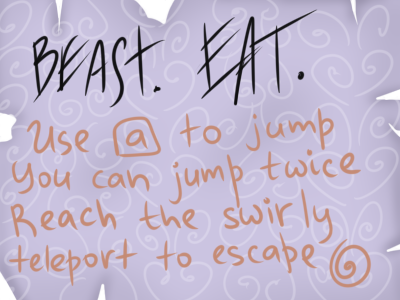 BEAST. EAT.
Use a to jump
You can jump twice
Reach the swirly
teleport to escape